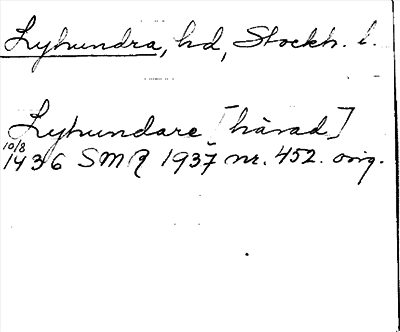 Lyhundra, hd, Stockh. l.
Lyhundare [härad]
10/8
1436 SMR 1937 nr. 452. orig.